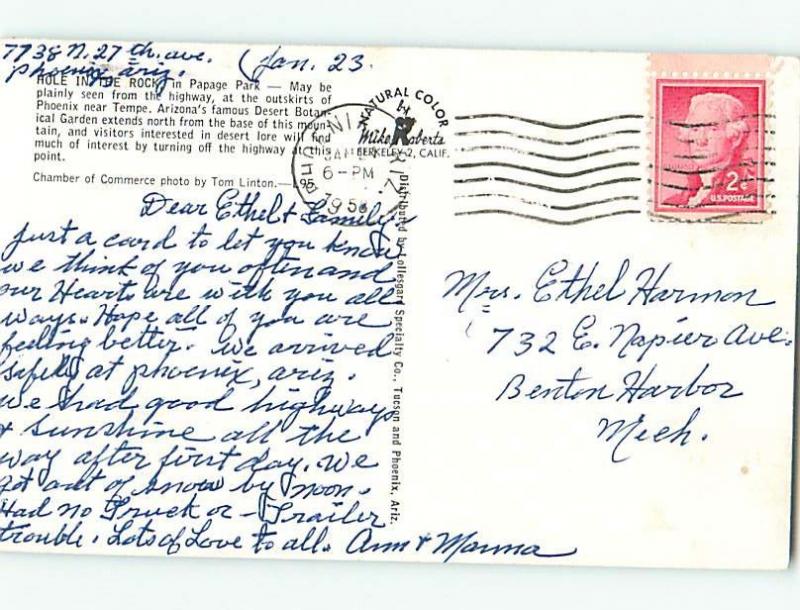 7738 N. 27th. ave. (Jan. 23.
Phoenix, ariz.
HOLE IN THE ROCK in Papago Park — May be
plainly seen from the highway, at the outskirts of
Phoenix near Tempe. Arizona's famous Desert Botan-
ical Garden extends north from the base of this moun-
tain, and visitors interested in desert lore will find
much of interest by turning off the highway at this
point.
Chamber of Commerce photo by Tom Linton.—L95
NATURAL COLOR
by
Mike Roberts
BERKELEY 2, CALIF.
6-PM
2¢
U.S. POSTAGE
Distributed by Lollesgard Specialty Co., Tucson and Phoenix, Ariz.
Dear Ethel & Family
Just a card to let you know
we think of you often and
our Hearts are with you all
ways. Hope all of you are
feeling better. We arrived
safely at phoenix, ariz.
We had good highways
& sunshine all the
way after first day. We
got out of snow by noon.
Had no Truck or Trailer
trouble. Lots of Love to all. Ann &
Mrs. Ethel Harmon
732 E. Napier Ave.
Benton Harbor
Mich.